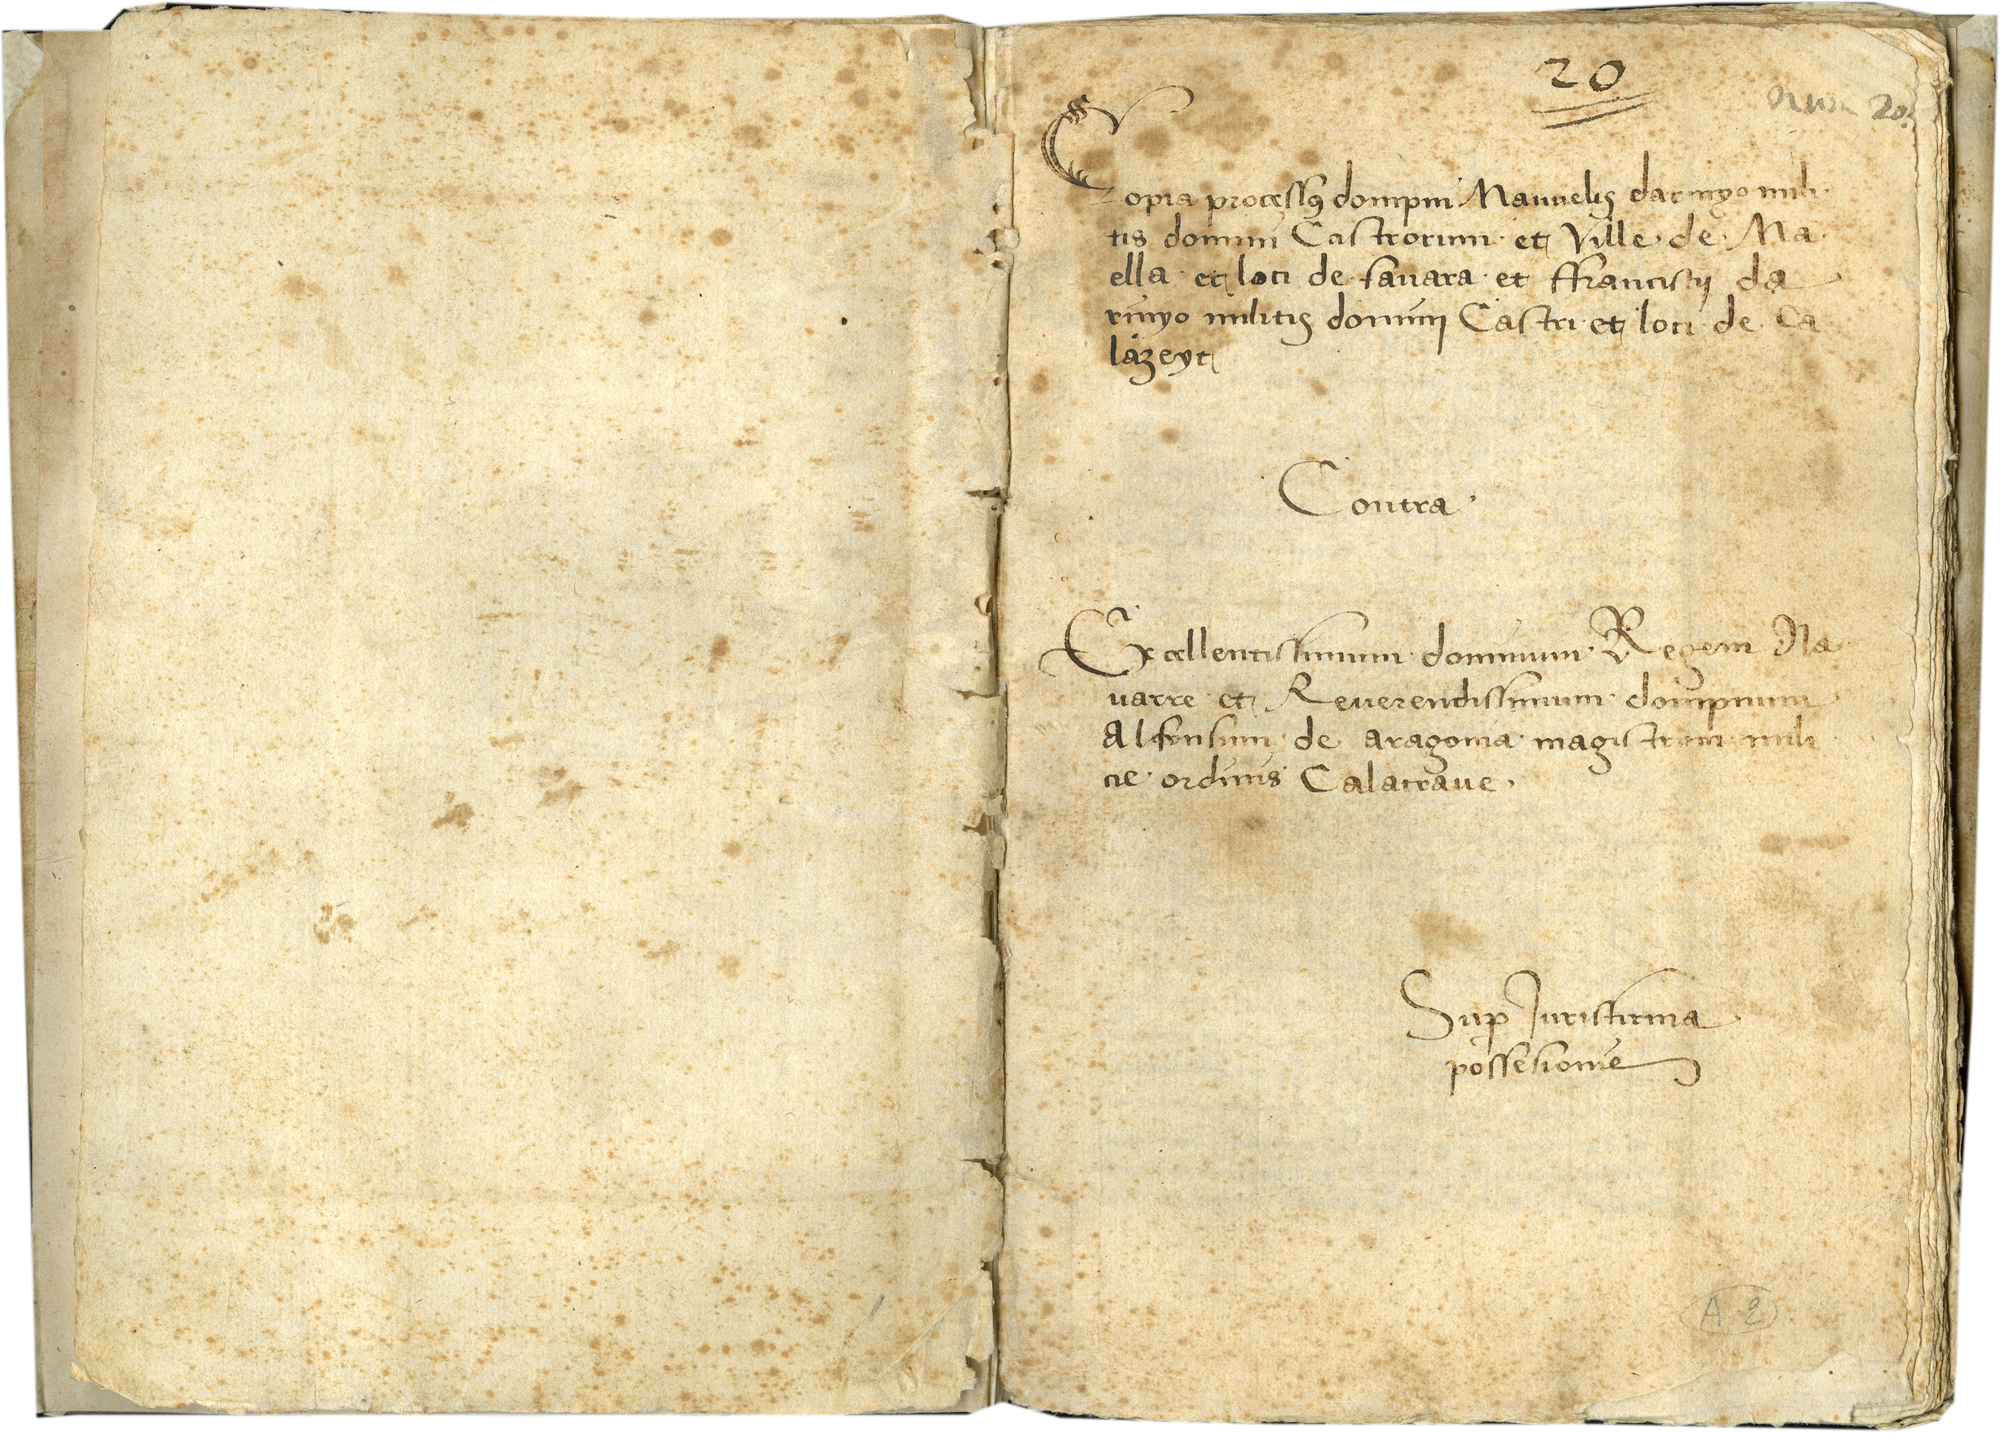 20
Num 20.
Copia processus dompni Manuelis darinyo mili
tis domini Castrorum et Ville de Ma
ella et loci de favara et ffrancisci da
rinyo militis domini Castri et loci de Ca
lazeyt
Contra
Excellentissimum dominum Regem Na
uarre et Reuerendissimum dompnum
Alfonsum de aragonia magistrum mili
cie ordinis Calatraue.
Sup Jurisfirma
possesionie
A 2